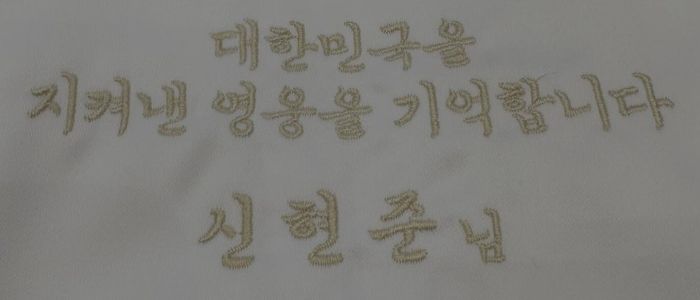 대한민국을
지켜낸 영웅을 기억합니다
신헌준님